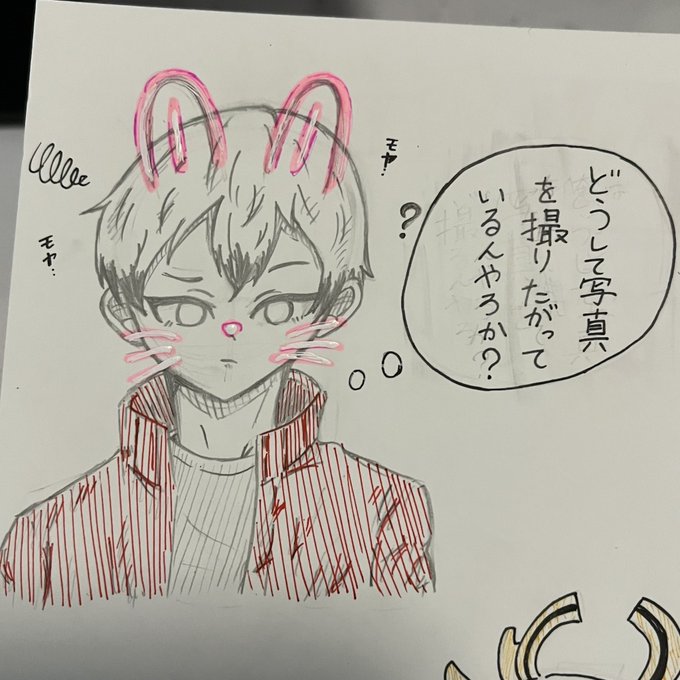 どうして写真
を撮りたがって
いるんやろか?
?
モヤ…
モヤ…